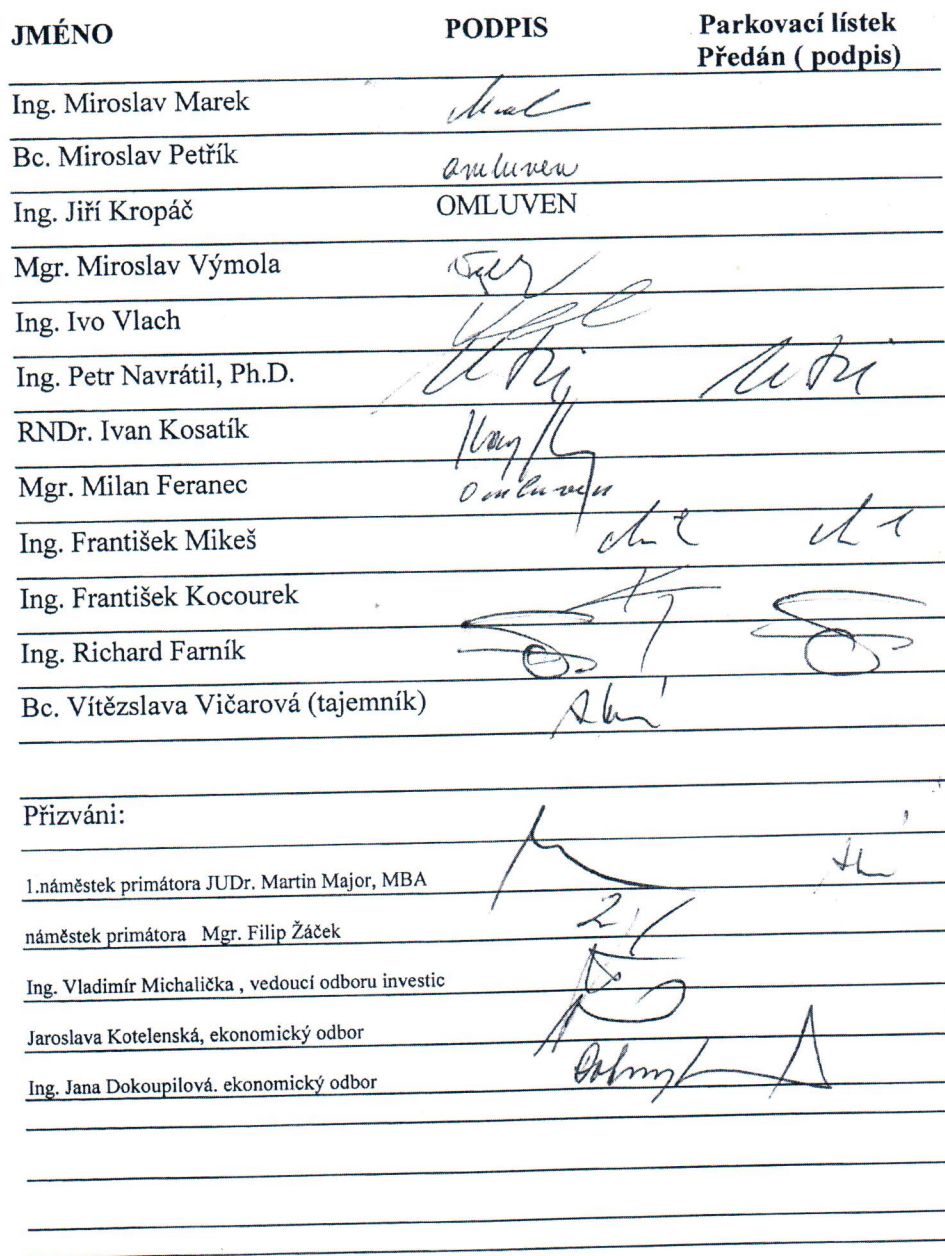 JMÉNO PODPIS Parkovací lístek
Předán ( podpis)
Ing. Miroslav Marek
Bc. Miroslav Petřík omluven
Ing. Jiří Kropáč OMLUVEN
Mgr. Miroslav Výmola
Ing. Ivo Vlach
Ing. Petr Navrátil, Ph.D.
RNDr. Ivan Kosatík
Mgr. Milan Feranec Omluven
Ing. František Mikeš
Ing. František Kocourek
Ing. Richard Farník
Bc. Vítězslava Vičarová (tajemník)
Přizváni:
1.náměstek primátora JUDr. Martin Major, MBA
náměstek primátora Mgr. Filip Žáček
Ing. Vladimír Michalička , vedoucí odboru investic
Jaroslava Kotelenská, ekonomický odbor
Ing. Jana Dokoupilová. ekonomický odbor